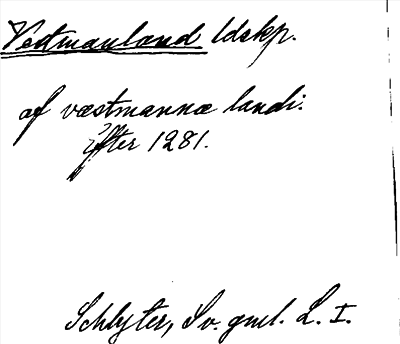 Vestmanland ldskp.
af væstmannæ landi.
Efter 1281.
Schlyter, Sv. gml. L. I.